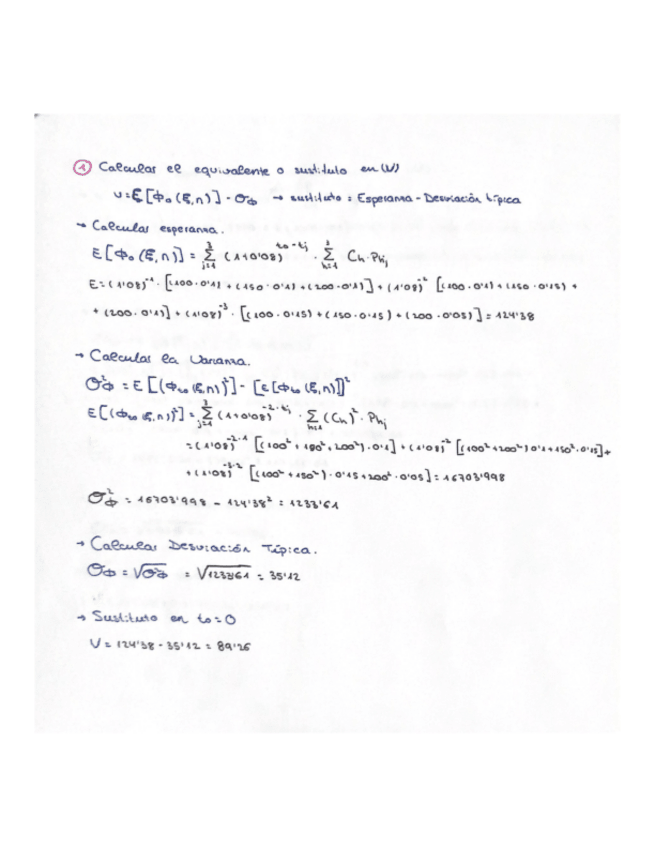 ① Calcular el equivalente o sustituto en (V)
V = E[Φ₀(ξ,n)] - σΦ → sustituto = Esperanza - Desviación típica
→ Calcular esperanza.
E[Φ₀(ξ,n)] = ∑_{j=1}^{3} (1+0'08)^{t₀-tj} · ∑_{h=1}^{3} Ch·Phj
E = (1'08)⁻¹ · [(100·0'1) + (150·0'1) + (200·0'1)] + (1'08)⁻² [(100·0'1) + (150·0'15) +
+ (200·0'1)] + (1'08)⁻³ · [(100·0'15) + (150·0'15) + (200·0'05)] = 124'38
→ Calcular la Varianza.
σ²Φ = E[(Φt₀(ξ,n)²] - [E[Φt₀(ξ,n)]]²
E[(Φt₀(ξ,n))²] = ∑_{j=1}^{3} (1+0'08)^{-2·tj} · ∑_{h=1} (Ch)²·Phj
= (1'08)^{-2·1} [(100² + 150² + 200²)·0'1] + (1'08)⁻² [(100²+200²)0'1+150²·0'15]+
+ (1'08)^{-3·2} [(100²+150²)·0'15+200²·0'05] = 16703'998
σ²Φ = 16703'998 - 124'38² = 1233'61
→ Calcular Desviación Típica.
σΦ = √σ²Φ = √1233'61 = 35'12
→ Sustituto en t₀=0
V = 124'38 - 35'12 = 89'26